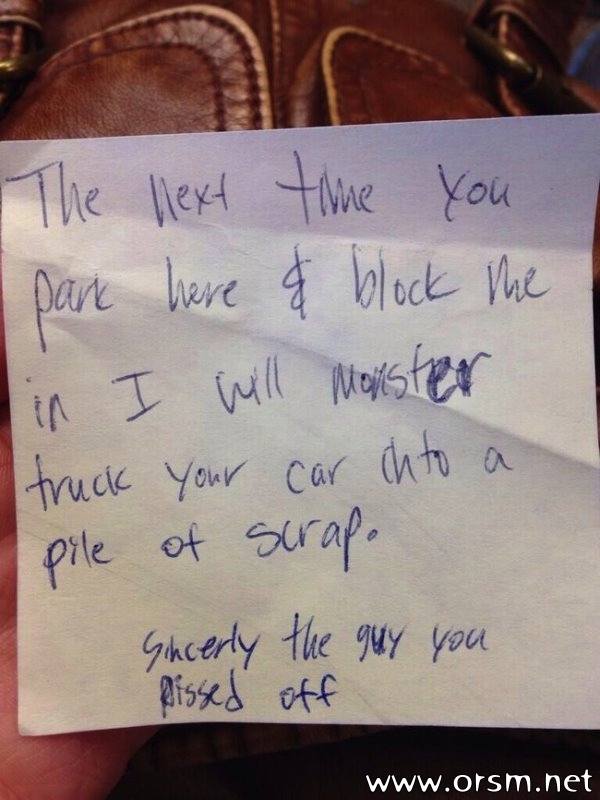 The next time you
park here & block me
in I will monster
truck your car into a
pile of scrap.
Sincerly the guy you
pissed off
www.orsm.net